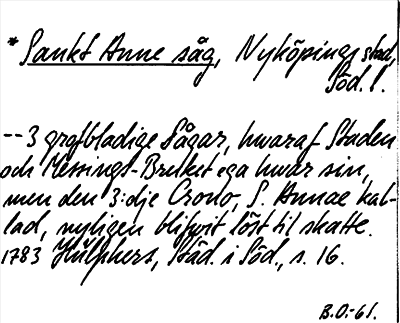 * Sankt Anne såg, Nyköpings stad,
Söd. l.
-- 3 grofbladige Sågar, hwaraf Staden
och Messings-Bruket ega hwar sin,
men den 3:dje Crono, S. Annae kal-
lad, nyligen blifwit löst til skatte.
1783 Hülphers, Städ. i Söd., s. 16.
B.O:-61.